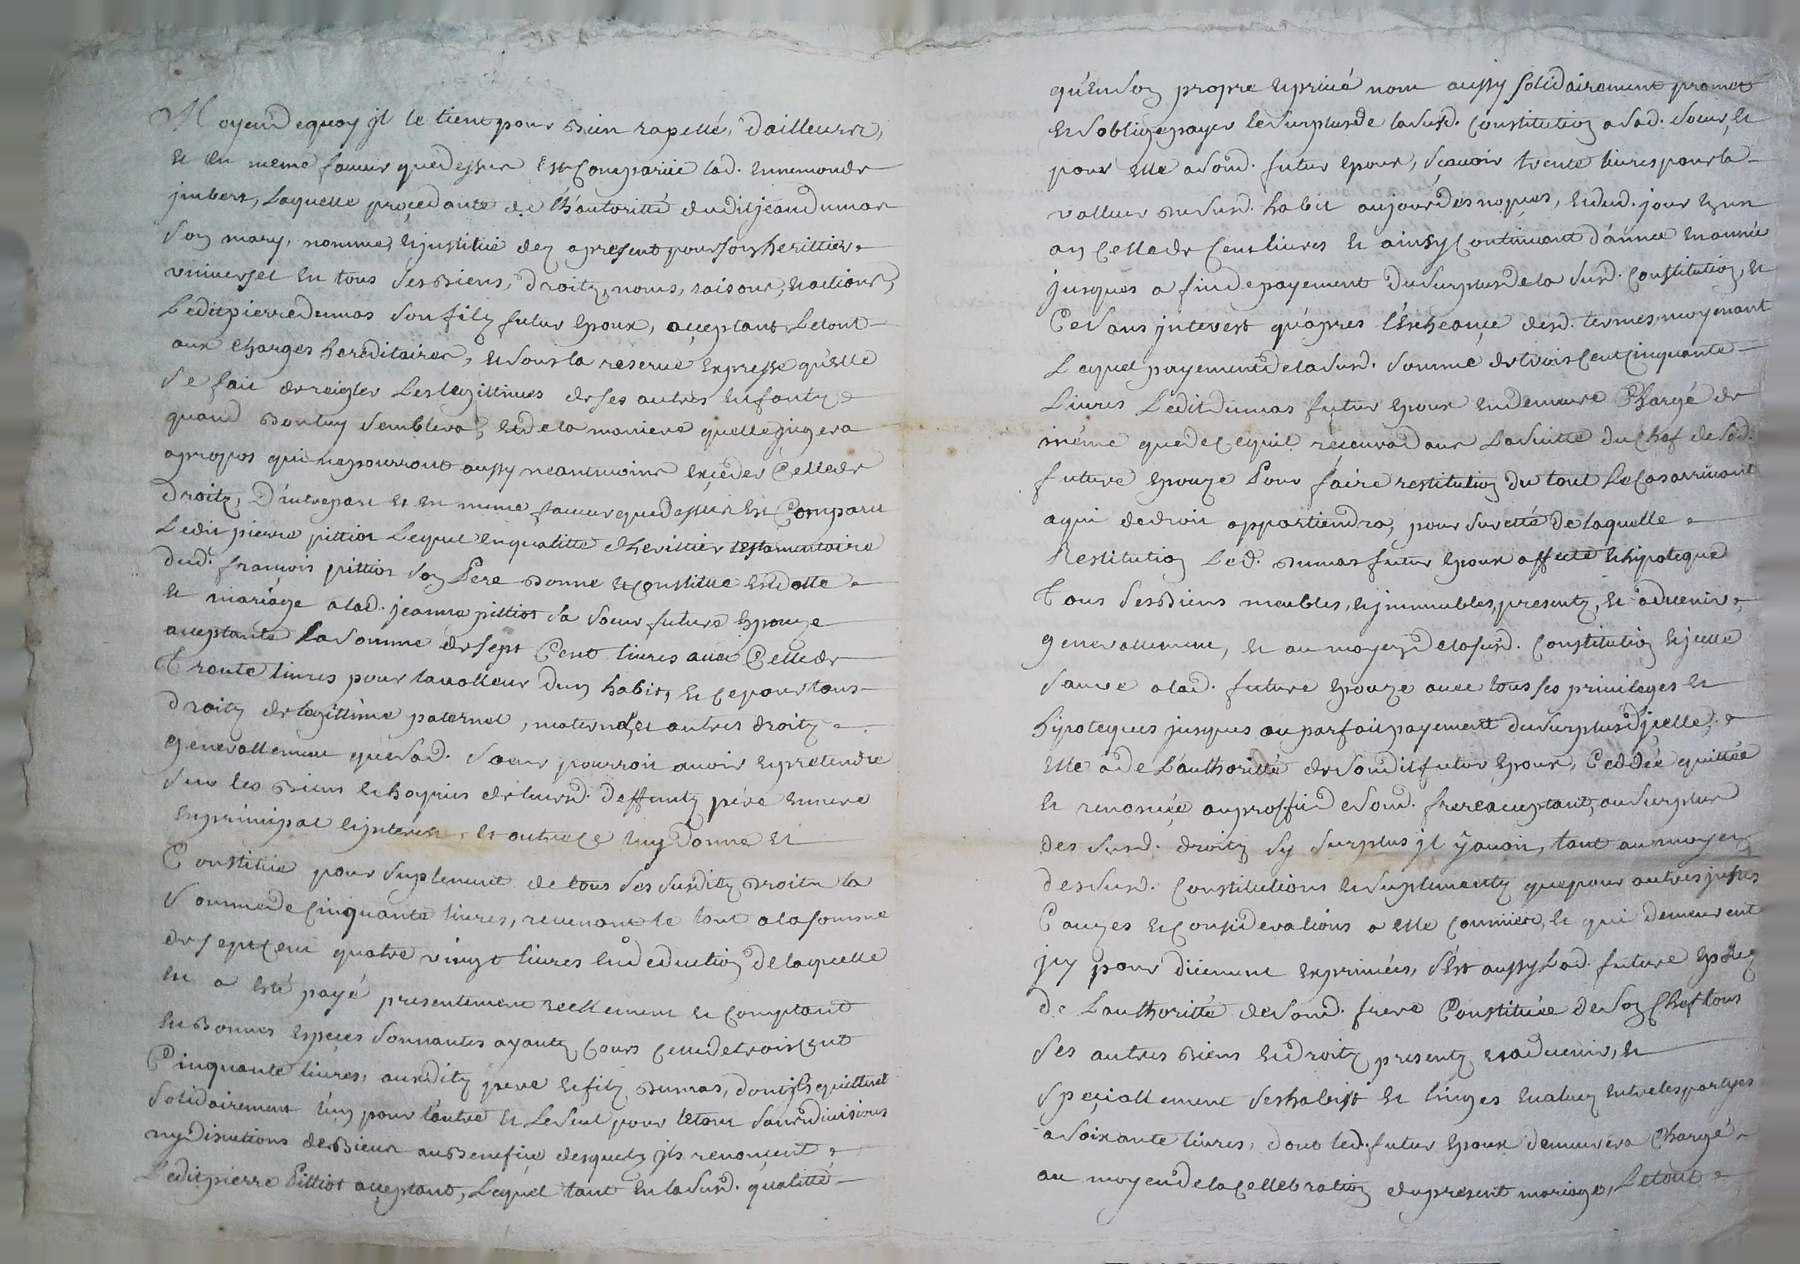 Moyend equoy jl le tient pour bien rapellé, d'ailleurs,
et en meme faveur que dessus est Comparüe lad. ennemonde
jmbert, Laquelle procedante de l'hautoritté dudit jean dumas
son mary, nomme, et justitüe dez apresent pour son herittier
vniversel en tous ses biens, droitz, noms, raisons, et actions,
Ledit pierre dumas son filz futur epoux, aceptant, Le tout
aux charges hereditaires, et sous la reserve expresse qu'elle
se fait de reigler Les legittimes de ses autres enfantz
quand bon luy semblera, et de la maniere quelle jugera
apropos qui ne pourront aussy neantmoins exceder Celle de
droitz, D'autrepart et en meme faveur que dessus est Comparu
Ledit pierre pittiot Lequel en qualitté d'herittier testamentaire
dud. francois pittiot son Pere donne et constitue en dotte
et mariage a lad. jeanne pittiot sa soeur future epouze
aceptante La somme de sept Cent livres avec Celle de
Trante livres pour la valleur d'un habit, et ce pour tous
droitz de legittime paternel, maternel et autres droitz
generallement que sad. soeur pourroit avoir et pretendre
sur les biens et hoyries de leursd. deffuntz père et mere
en principal et jnterest, et outre ce luy donne et
Constitüe pour suplement de tous ses susditz droitz la
somme de Cinquante livres, revenant le tout a la somme
de sept Cent quatre vingt livres en deduction de laquelle
en a esté payé presentement reellement et comptant
en bonnes especes sonnantes ayantz cours celle de trois Cent
Cinquante livres, ausditz pere et filz dumas, dont jls quittent
solidairement l'un pour l'autre et Le seul pour le tout sans divisions
ny discutions de biens au benefice desquelz jls renoncent
Ledit pierre Pittiot aceptant, Lequel tant en la susd. qualitté
qu'en son propre et privé nom aussy solidairement promet
et s'oblige payer le surplus de la susd. Constitution a sad. soeur, et
pour elle a sond. futur epoux, scavoir trente livres pour la
valleur du susd. habit aujour des nopces, et dud. jour en un
an celle de Cent livres et ainsy Continuant d'année en année
jusques a fin de payement du surplus de la susd. Constitution, et
Ce sans jnterest qu'apres l'écheance desd. termes, moyenant
Lequel payement de la susd. somme de trois Cent Cinquante
Livres Ledit dumas futur epoux en demeure Chargé de
même que de ce qu'il recevra dans La suitte du Chef de sad.
future epouze Pour faire restitution du tout Le Cas arrivant
a qui de droit appartiendra, pour suretté de laquelle
Restitution Led. dumas futur epoux affecte et hipoteque
Tous ses biens meubles, et jmmeubles, presentz, et advenir,
generallement, et au moyend de la susd. Constitution et jcelle
sauve a lad. future epouze avec tous ses privileges et
hypoteques jusques au parfait payement du surplus d'jcelle,
elle a de L'authoritté de son dit futur epoux, Ceddée quittée
et renoncée au proffit de sond. frere aceptant, au surplus
des susd. droitz sy surplus jl y avoit, tant au moyen
des susd. Constitutions et suplementz que pour autres justes
Causes et considerations a elle connües, et qui demeurent
jcy pour düement exprimées, s'est aussy Lad. future epouze
de L'authoritté de sond. frere Constituée de son Chef tous
ses autres biens et droitz presentz et advenir, et
speciallement ses habits et linges evaluez entre les partyes
a soixante livres, dont led. futur epoux demeurera Chargé
au moyend de la Cellebration du present mariage, Le tout